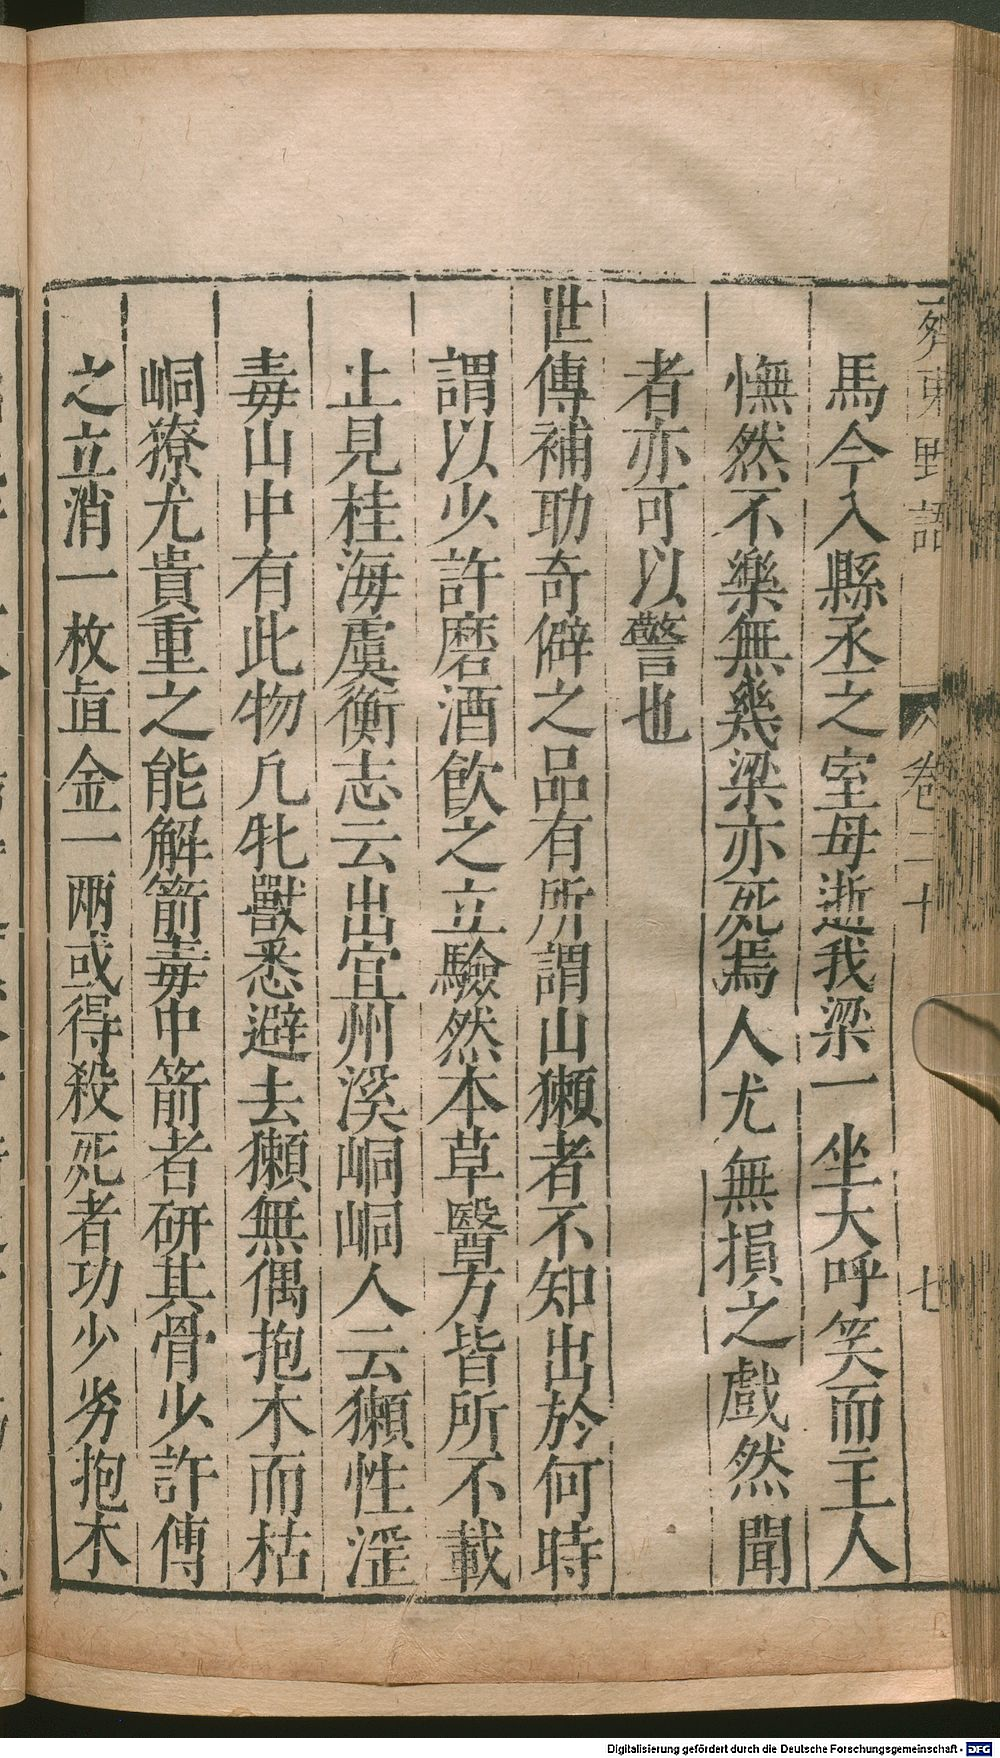 齊東野語 卷二十 七
馬今入縣丞之室母逝我梁一坐大呼笑而主人
憮然不樂無幾梁亦死焉人尤無損之戲然聞
者亦可以警也
世傳補助奇僻之品有所謂山獺者不知出於何時
謂以少許磨酒飲之立驗然本草醫方皆所不載
止見桂海虞衡志云出宜州溪峒峒人云獺性淫
毒山中有此物凡牝獸悉避去獺無偶抱木而枯
峒獠尤貴重之能解箭毒中箭者研其骨少許傳
之立消一枚直金一兩或得殺死者功少劣抱木
Digitalisierung gefördert durch die Deutsche Forschungsgemeinschaft - DFG